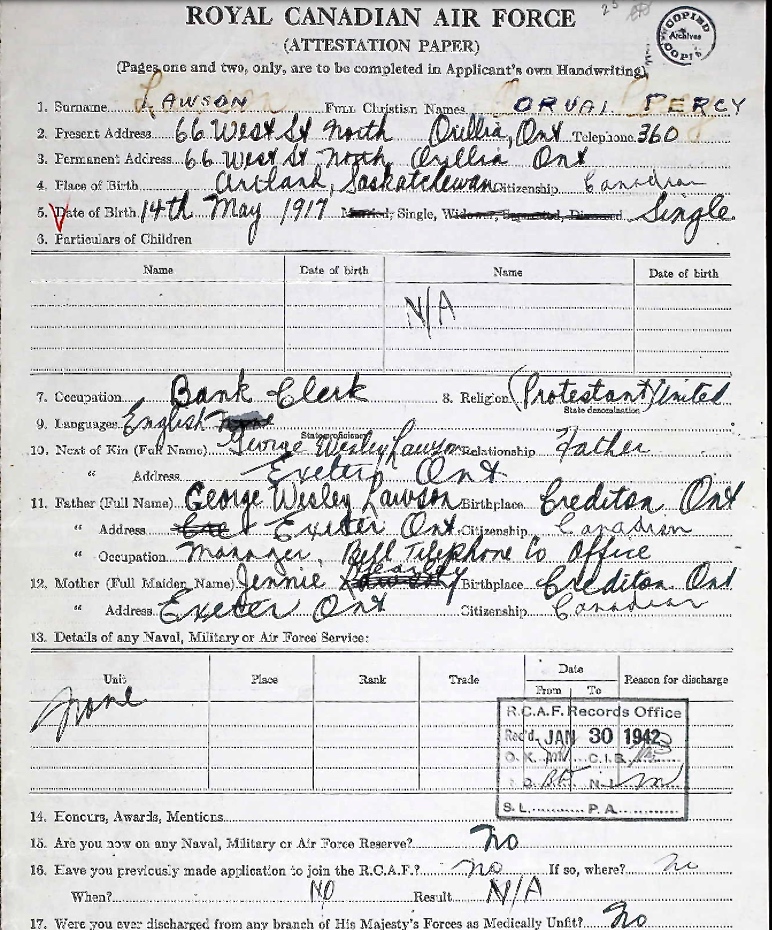 ROYAL CANADIAN AIR FORCE
(ATTESTATION PAPER)
(Pages one and two, only, are to be completed in Applicant's own Handwriting)
COPIED
Archives
COPIE
1. Surname LAWSON Full Christian Names ORVAL PERCY
2. Present Address 66 West St North Orillia, Ont Telephone 360
3. Permanent Address 66 West St North Orillia Ont
4. Place of Birth Artland, Saskatchewan Citizenship Canadian
5. Date of Birth 14th May 1917 Married, Single, Widower, Separated, Divorced Single
6. Particulars of Children
Name Date of birth Name Date of birth
N/A
7. Occupation Bank Clerk 8. Religion (Protestant) United
State denomination
9. Languages English
State proficiency
10. Next of Kin (Full Name) George Wesley Lawson Relationship Father
" Address Exeter Ont
11. Father (Full Name) George Wesley Lawson Birthplace Crediton Ont
" Address Exeter Ont Citizenship Canadian
" Occupation Manager, Bell Telephone Co Office
12. Mother (Full Maiden Name) Jennie Birthplace Crediton Ont
" Address Exeter Ont Citizenship Canadian
13. Details of any Naval, Military or Air Force Service:
Unit Place Rank Trade Date Reason for discharge
From To
None
R.C.A.F. Records Office
Rec'd. JAN 30 1942
O.K. C.I.B.
N.I.
S.L. P.A.
14. Honours, Awards, Mentions
15. Are you now on any Naval, Military or Air Force Reserve? No
16. Have you previously made application to join the R.C.A.F.? no If so, where? no
When? NO Result N/A
17. Were you ever discharged from any branch of His Majesty's Forces as Medically Unfit? No